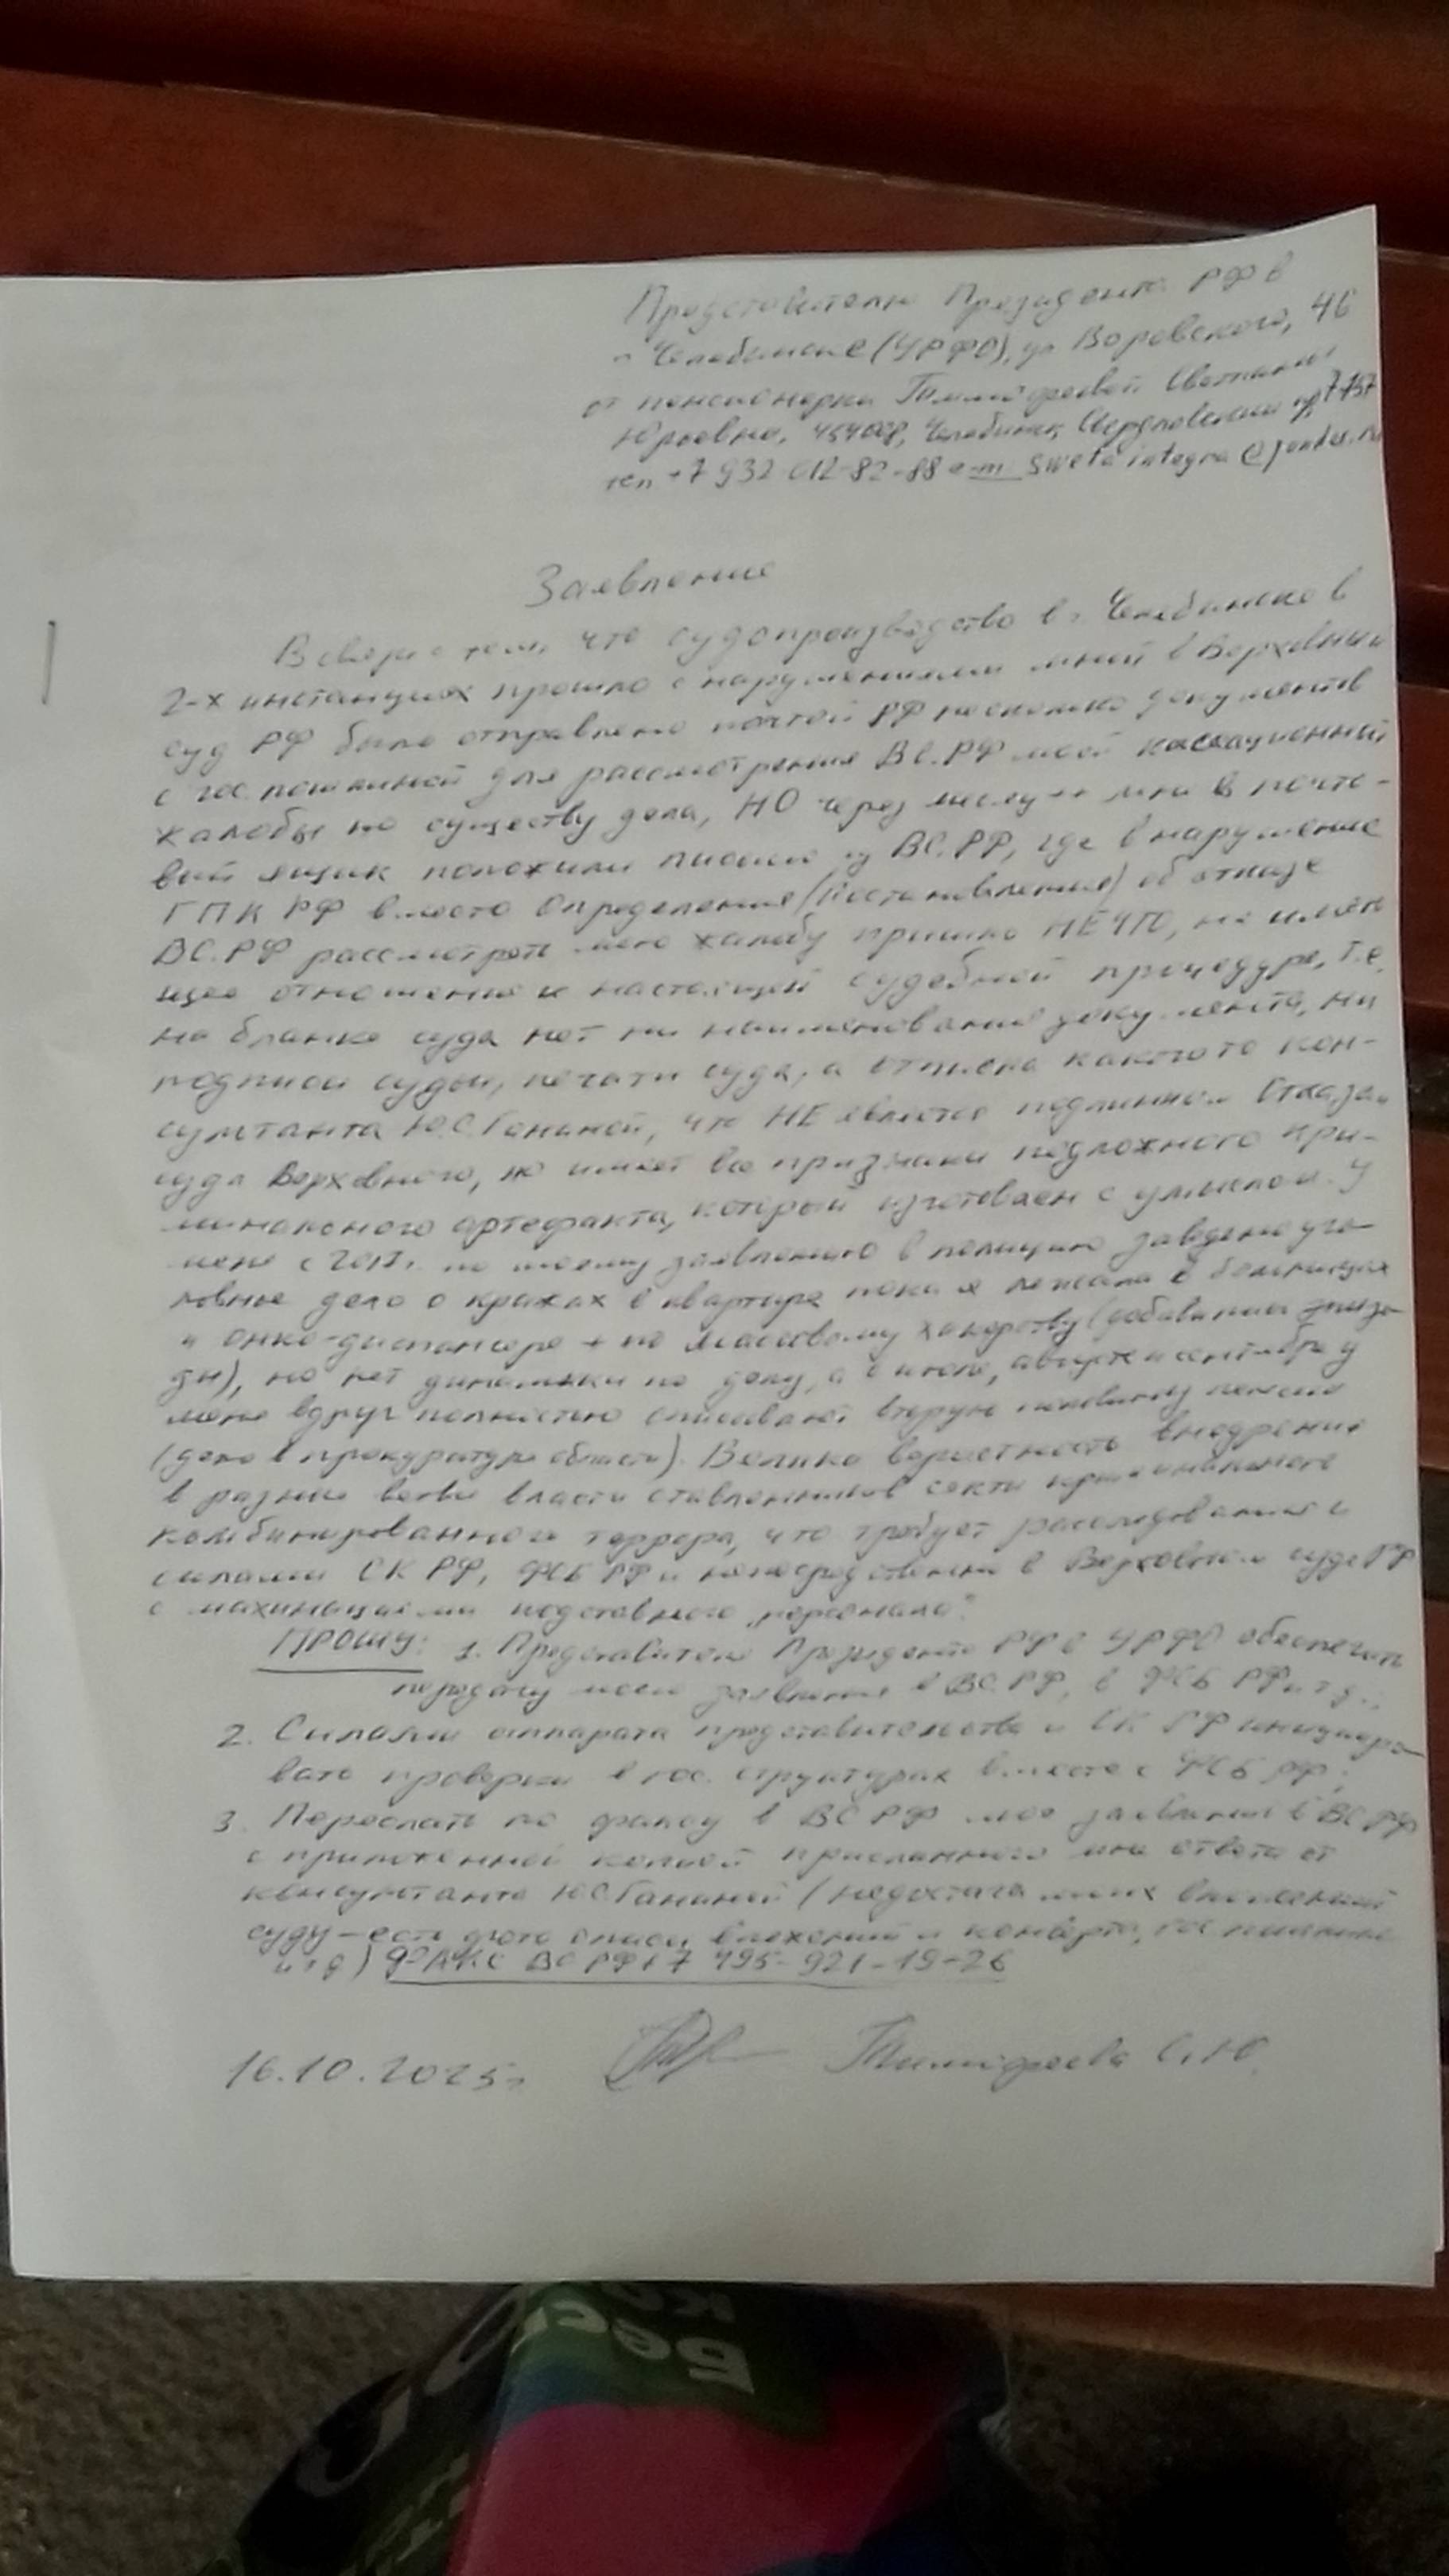 Представителю Президента РФ в
г. Челябинске (УРФО), ул Воровского, 46
от пенсионерки Тимофеевой Светланы
Юрьевны, 454008, Челябинск, Свердловский пр
тел +7 932 012-82-88 e-m sweta integra @
Заявление
В связи с тем, что судопроизводство в г. Челябинске в
2-х инстанциях прошло с нарушениями мной в Верховный
суд РФ было отправлено почтой РФ несколько документов
с гос. пошлиной для рассмотрения ВС.РФ моей кассационной
жалобы по существу дела, НО через месяц ++ мне в почто-
вый ящик положили письмо из ВС.РФ, где в нарушение
ГПК РФ вместо Определения (Постановления) об отказе
ВС.РФ рассмотреть мою жалобу пришло НЕЧТО, не имею
щее отношения к настоящей судебной процедуре, т.е.
на бланке суда нет ни наименования документа, ни
подписи судьи, печати суда, а отписка какого то кон-
сультанта Ю.С.Ганиной, что НЕ является подлинным Отказом
суда Верховного, но имеет все признаки подложного кри-
минального артефакта, который изготовлен с умыслом. У
меня с по моему заявлению в полицию заведено уго-
ловное дело о кражах в квартире пока я лежала в больницах
и онко-диспансере + по массовому хакерству (добавлены эпизо-
ды), но нет динамики по делу, а в июле, августе и сентябре у
меня вдруг полностью списывают вторую половину пенсии
(дело в прокуратуре области). Велика вероятность внедрения
в разные ветви власти ставленников секты криминального
комбинированного террора, что требует расследования с
силами СК РФ, ФСБ РФ и непосредственно в Верховном суде РФ
с махинациями подставного "персонала".
Прошу: 1. Представителя Президента РФ в УРФО обеспечить
передачу моего заявления в ВС РФ, в ФСБ РФ и т.д.;
2. Силами аппарата представительства и СК РФ иницииро-
вать проверки в гос. структурах вместе с ФСБ РФ;
3. Переслать по факсу в ВС РФ мое заявление в ВС РФ
с приложенной копией присланного мне ответа от
консультанта Ю.С.Ганиной (недостача моих вложений
суду - есть фото описи вложений и конверта, гос пошлины
и т.д) ФАКС ВС РФ +7 495-921-19-26
16.10.2025г Тимофеева С.Ю.